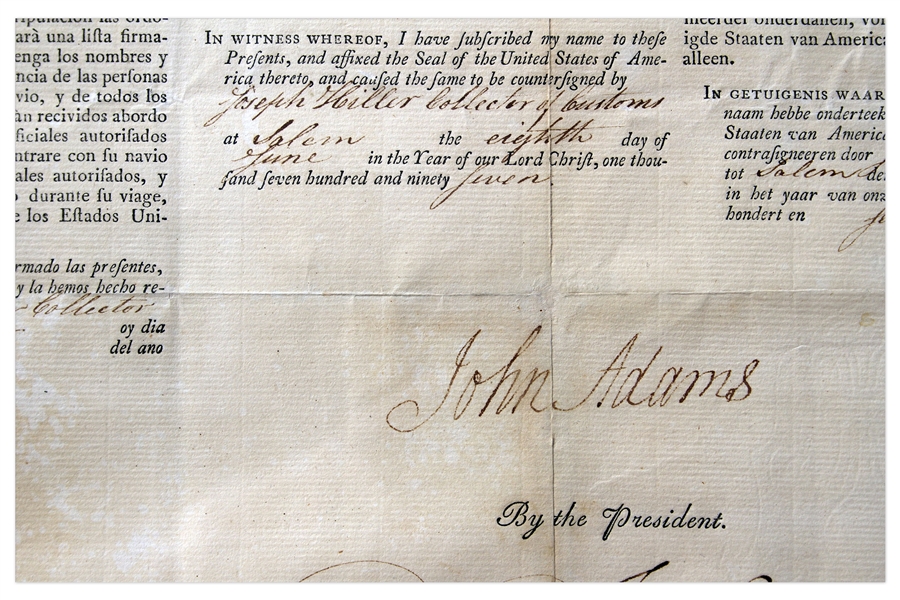 ripulacion las ordo-
ará una liſta firma-
enga los nombres y
ncia de las perſonas
vio, y de todos los
an recividos abordo
ficiales autoriſados
ntrare con ſu navio
ales autoriſados, y
durante ſu viage,
e los Eſtados Uni-
rmado las preſentes,
y la hemos hecho re-
Collector
oy dia
del ano
IN WITNESS WHEREOF, I have ſubſcribed my name to theſe
Preſents, and affixed the Seal of the United States of Ame-
rica thereto, and cauſed the ſame to be counterſigned by
Joseph Hiller Collector of Customs
at Salem the eighth day of
June in the Year of our Lord Chriſt, one thou-
ſand ſeven hundred and ninety seven.
John Adams
By the President.
meerder onderdanen, vo
igde Staaten van America
alleen.
IN GETUIGENIS WAAR
naam hebbe onderteek
Staaten van Americ
contraſigneeren door
tot Salem de
in het yaar van onz
hondert en